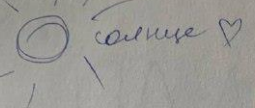 солнце ♡